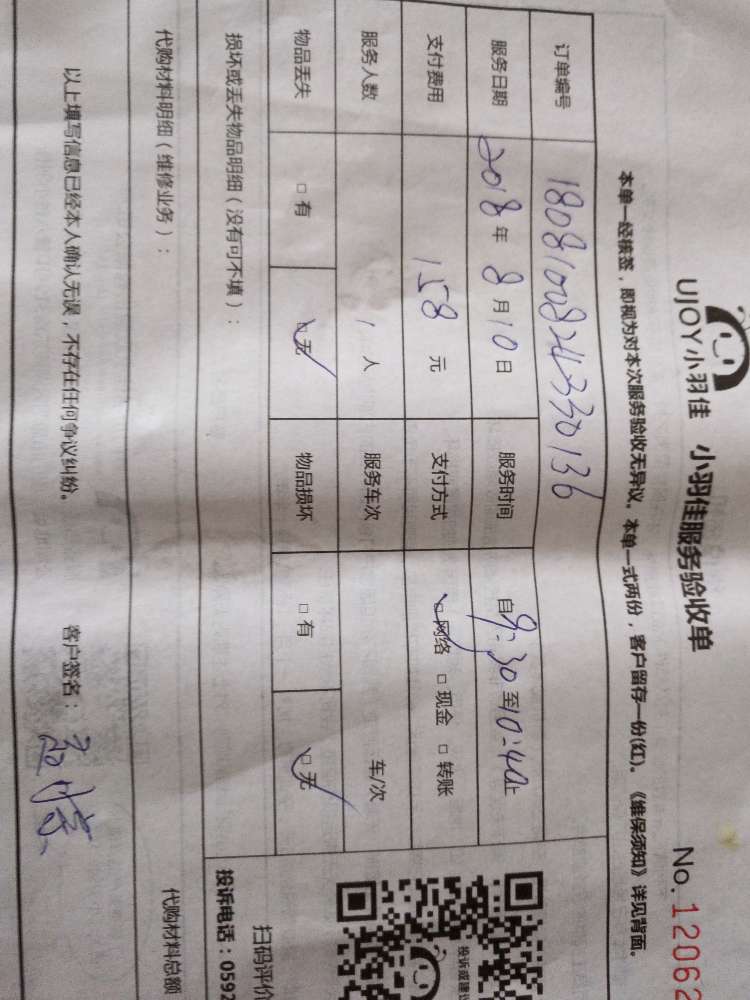 UJOY小羽佳 小羽佳服务验收单 No. 12062
本单一经核签，即视为对本次服务验收无异议。本单一式两份，客户留存一份(红)。《维保须知》详见背面。
订单编号 180810082433036
服务日期 2018年8月10日 服务时间 自9:30至10:40止
支付费用 158元 支付方式 □网络 □现金 □转账
服务人数 1人 服务车次 车/次
物品丢失 □有 □无 物品损坏 □有 □无
损坏或丢失物品明细（没有可不填）：
投诉或建议
扫码评价
投诉电话：0592
代购材料明细（维修业务）： 代购材料总额
以上填写信息已经本人确认无误，不存在任何争议纠纷。 客户签名：